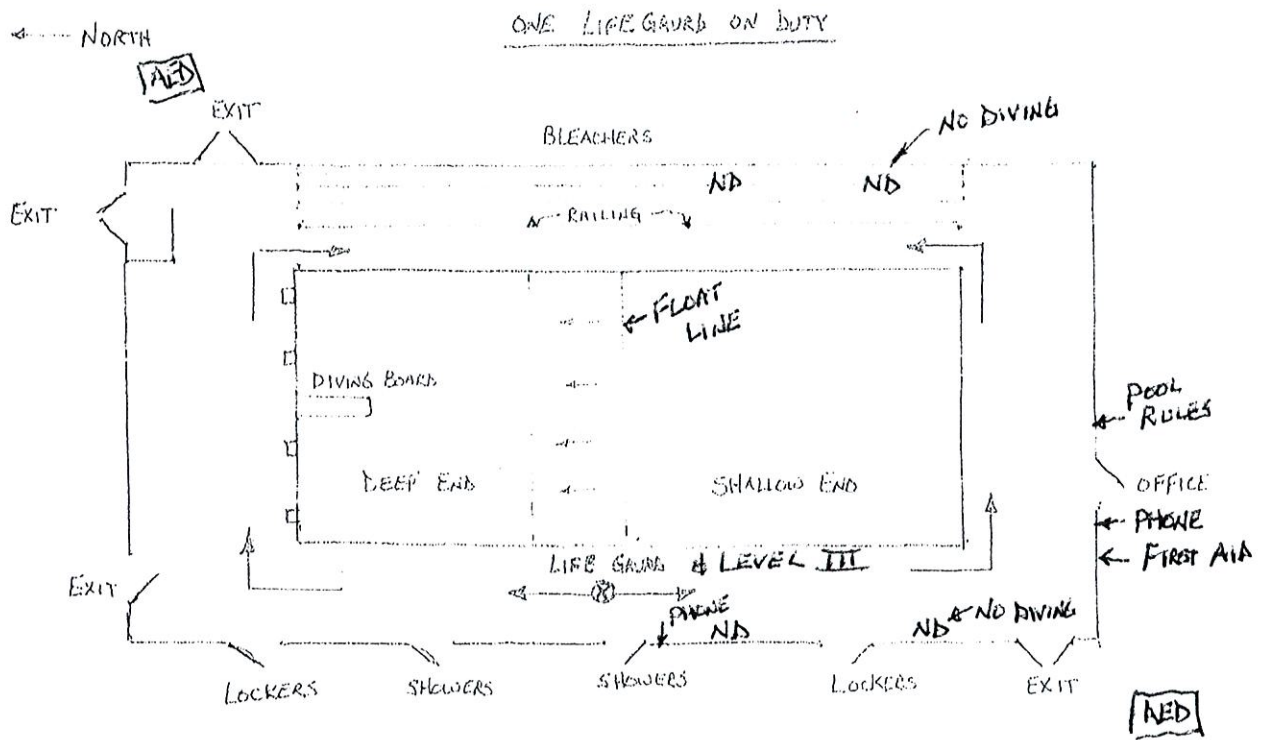 ONE LIFE GAURD ON DUTY
NORTH
AED
EXIT
BLEACHERS
NO DIVING
ND ND
EXIT
RAILING
FLOAT
LINE
DIVING BOARD
POOL
RULES
DEEP END
SHALLOW END
OFFICE
PHONE
FIRST AID
LIFE GAURD & LEVEL III
EXIT
PHONE
ND
ND
NO DIVING
LOCKERS
SHOWERS
SHOWERS
LOCKERS
EXIT
AED